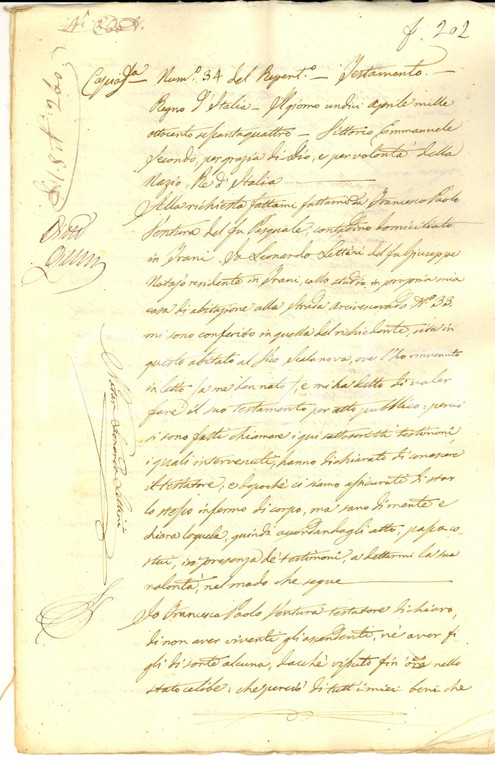 f. 202
Copia Num.º 34 del Repert.º — Testamento. —
Regno d'Italia — Il giorno undici aprile mille
ottocento settantaquattro — Vittorio Emmanuele
Secondo, per grazia di Dio, e per volontà della
Nazio, Re d'Italia
Alla richiesta fattami da Francesco Paolo
Ventura del fu Pasquale, contadino domiciliato
in Trani. Io Leonardo Lettini del fu Giuseppe
Notajo residente in Trani, collo studio in propria mia
casa di abitazione alla strada Arcivescovado Nº 33.
mi sono conferito in quella del richiedente, sita in
questo abitato al Vico Scalanova, ove l'ho rinvenuto
in letto, da me ben noto, e mi ha detto di voler
fare il suo testamento per atto pubblico: perciò
si sono fatti chiamare i qui sottoscritti testimoni,
i quali intervenuti, hanno dichiarato di conoscere
il testatore; e dopochè ci siamo assicurati di star
lo stesso infermo di corpo, ma sano di mente e
chiara loquela, quindi accordandogli atto, passa co
stui, in presenza de' testimoni, a dettarmi la sua
volontà, nel modo che segue
Io Francesco Paolo Ventura testatore dichiaro,
di non aver viventi gli ascendenti, nè aver fi
gli di sorte alcuna, dacchè vissuto fin ora nello
stato celibe: che perciò di tutt'i miei beni che
Notar Leonardo Lettini